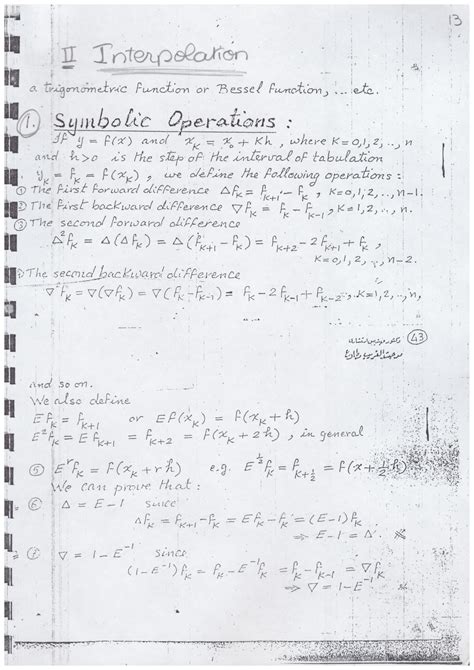 13
II Interpolation
a trigonometric function or Bessel function, ... etc.
1. Symbolic Operations :
If y = f(x) and x_K = x_0 + Kh , where K=0,1,2,..,n
and h>0 is the step of the interval of tabulation
y_K = f_K = f(x_K) , we define the following operations :
① The first forward difference Δf_K = f_{K+1} - f_K , K=0,1,2,..,n-1.
② The first backward difference ∇f_K = f_K - f_{K-1} , K=1,2,..,n.
③ The second forward difference
Δ²f_K = Δ(Δf_K) = Δ(f_{K+1} - f_K) = f_{K+2} - 2f_{K+1} + f_K ,
K=0,1,2,..,n-2.
The second backward difference
∇²f_K = ∇(∇f_K) = ∇(f_K - f_{K-1}) = f_K - 2f_{K-1} + f_{K-2} , K=1,2,..,n,
43
and so on.
We also define
Ef_K = f_{K+1} or Ef(x_K) = f(x_K + h)
E²f_K = E f_{K+1} = f_{K+2} = f(x_K + 2h) , in general
⑤ E^r f_K = f(x_K + rh) e.g. E^{1/2} f_K = f_{K+1/2} = f(x + 1/2 h)
We can prove that :
⑥ Δ = E-1 since
Δf_K = f_{K+1} - f_K = Ef_K - f_K = (E-1)f_K
⇒ E-1 = Δ.
⑦ ∇ = 1-E^{-1} since
(1-E^{-1})f_K = f_K - E^{-1}f_K = f_K - f_{K-1} = ∇f_K
⇒ ∇ = 1-E^{-1}.